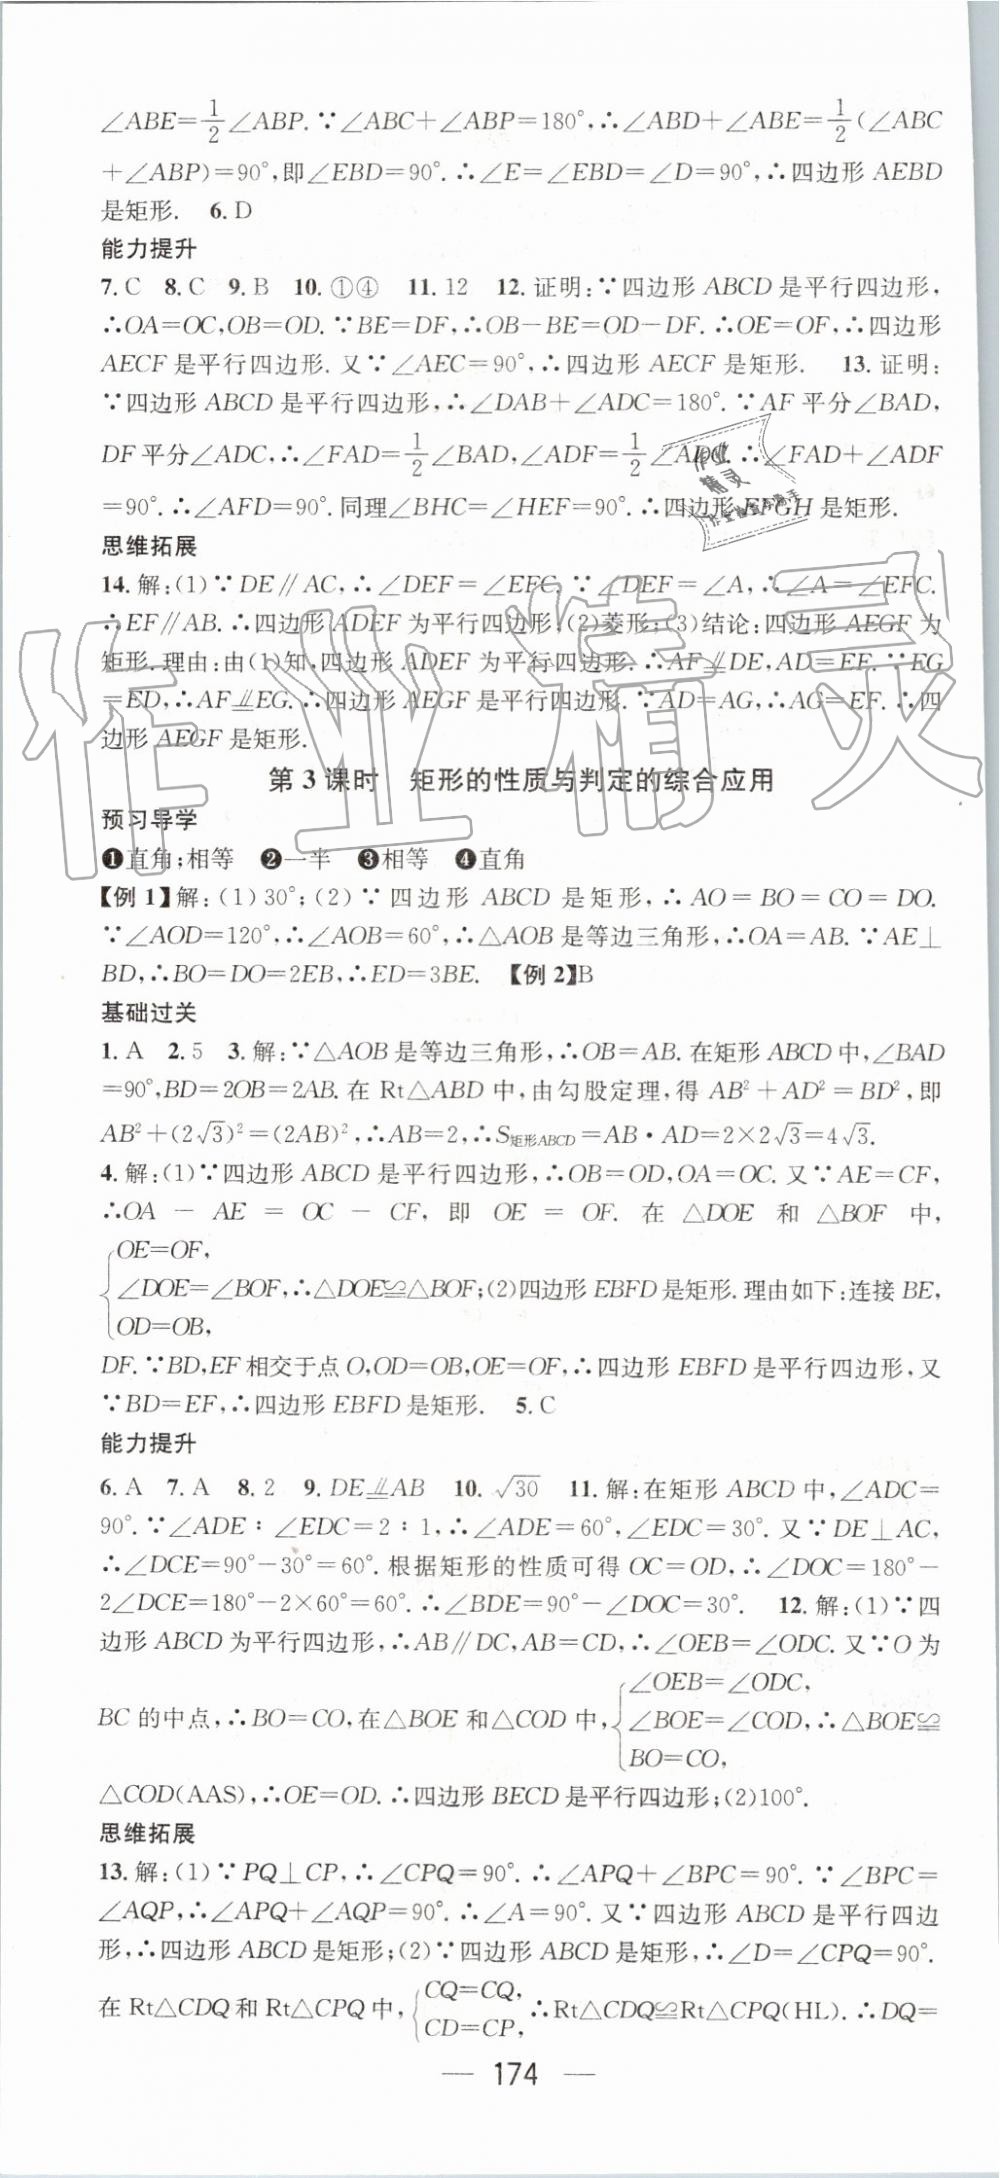 ∠ABE=1/2∠ABP.∵∠ABC+∠ABP=180°,∴∠ABD+∠ABE=1/2(∠ABC
+∠ABP)=90°,即∠EBD=90°.∴∠E=∠EBD=∠D=90°,∴四边形 AEBD
是矩形. 6.D
能力提升
7.C 8.C 9.B 10.①④ 11.12 12.证明:∵四边形 ABCD 是平行四边形,
∴OA=OC,OB=OD.∵BE=DF,∴OB-BE=OD-DF.∴OE=OF,∴四边形
AECF 是平行四边形.又∵∠AEC=90°,∴四边形 AECF 是矩形. 13.证明:
∵四边形 ABCD 是平行四边形,∴∠DAB+∠ADC=180°.∵AF 平分∠BAD,
DF 平分∠ADC,∴∠FAD=1/2∠BAD,∠ADF=1/2∠ADC.∴∠FAD+∠ADF
=90°.∴∠AFD=90°.同理∠BHC=∠HEF=90°.∴四边形 EFGH 是矩形.
思维拓展
14.解:(1)∵DE∥AC,∴∠DEF=∠EFC.∵∠DEF=∠A,∴∠A=∠EFC.
∴EF∥AB.∴四边形 ADEF 为平行四边形;(2)菱形;(3)结论:四边形 AEGF 为
矩形.理由:由(1)知,四边形 ADEF 为平行四边形.∴AF⫽DE,AD=EF.∵EG
=ED,∴AF⫽EG.∴四边形 AEGF 是平行四边形.∵AD=AG,∴AG=EF.∴四
边形 AEGF 是矩形.
第 3 课时 矩形的性质与判定的综合应用
预习导学
❶直角;相等 ❷一半 ❸相等 ❹直角
【例 1】解:(1)30°;(2)∵四边形 ABCD 是矩形,∴AO=BO=CO=DO.
∵∠AOD=120°,∴∠AOB=60°,∴△AOB 是等边三角形,∴OA=AB.∵AE⊥
BD,∴BO=DO=2EB,∴ED=3BE. 【例 2】B
基础过关
1.A 2.5 3.解:∵△AOB 是等边三角形,∴OB=AB.在矩形 ABCD 中,∠BAD
=90°,BD=2OB=2AB.在 Rt△ABD 中,由勾股定理,得 AB²+AD²=BD²,即
AB²+(2√3)²=(2AB)²,∴AB=2,∴S矩形ABCD=AB·AD=2×2√3=4√3.
4.解:(1)∵四边形 ABCD 是平行四边形,∴OB=OD,OA=OC.又∵AE=CF,
∴OA-AE=OC-CF,即 OE=OF.在△DOE 和△BOF 中,
OE=OF,
∠DOE=∠BOF,∴△DOE≌△BOF;(2)四边形 EBFD 是矩形.理由如下:连接 BE,
OD=OB,
DF.∵BD,EF 相交于点 O,OD=OB,OE=OF,∴四边形 EBFD 是平行四边形,又
∵BD=EF,∴四边形 EBFD 是矩形. 5.C
能力提升
6.A 7.A 8.2 9.DE⫽AB 10.√30 11.解:在矩形 ABCD 中,∠ADC=
90°.∵∠ADE∶∠EDC=2∶1,∴∠ADE=60°,∠EDC=30°.又∵DE⊥AC,
∴∠DCE=90°-30°=60°.根据矩形的性质可得 OC=OD,∴∠DOC=180°-
2∠DCE=180°-2×60°=60°.∴∠BDE=90°-∠DOC=30°. 12.解:(1)∵四
边形 ABCD 为平行四边形,∴AB∥DC,AB=CD,∴∠OEB=∠ODC.又∵O 为
∠OEB=∠ODC,
BC 的中点,∴BO=CO,在△BOE 和△COD 中,∠BOE=∠COD,∴△BOE≌
BO=CO,
△COD(AAS),∴OE=OD.∴四边形 BECD 是平行四边形;(2)100°.
思维拓展
13.解:(1)∵PQ⊥CP,∴∠CPQ=90°.∴∠APQ+∠BPC=90°.∵∠BPC=
∠AQP,∴∠APQ+∠AQP=90°.∴∠A=90°.又∵四边形 ABCD 是平行四边
形,∴四边形 ABCD 是矩形;(2)∵四边形 ABCD 是矩形,∴∠D=∠CPQ=90°.
在 Rt△CDQ 和 Rt△CPQ 中,CQ=CQ,∴Rt△CDQ≌Rt△CPQ(HL).∴DQ=
CD=CP,
174
作业精灵
作业
精灵